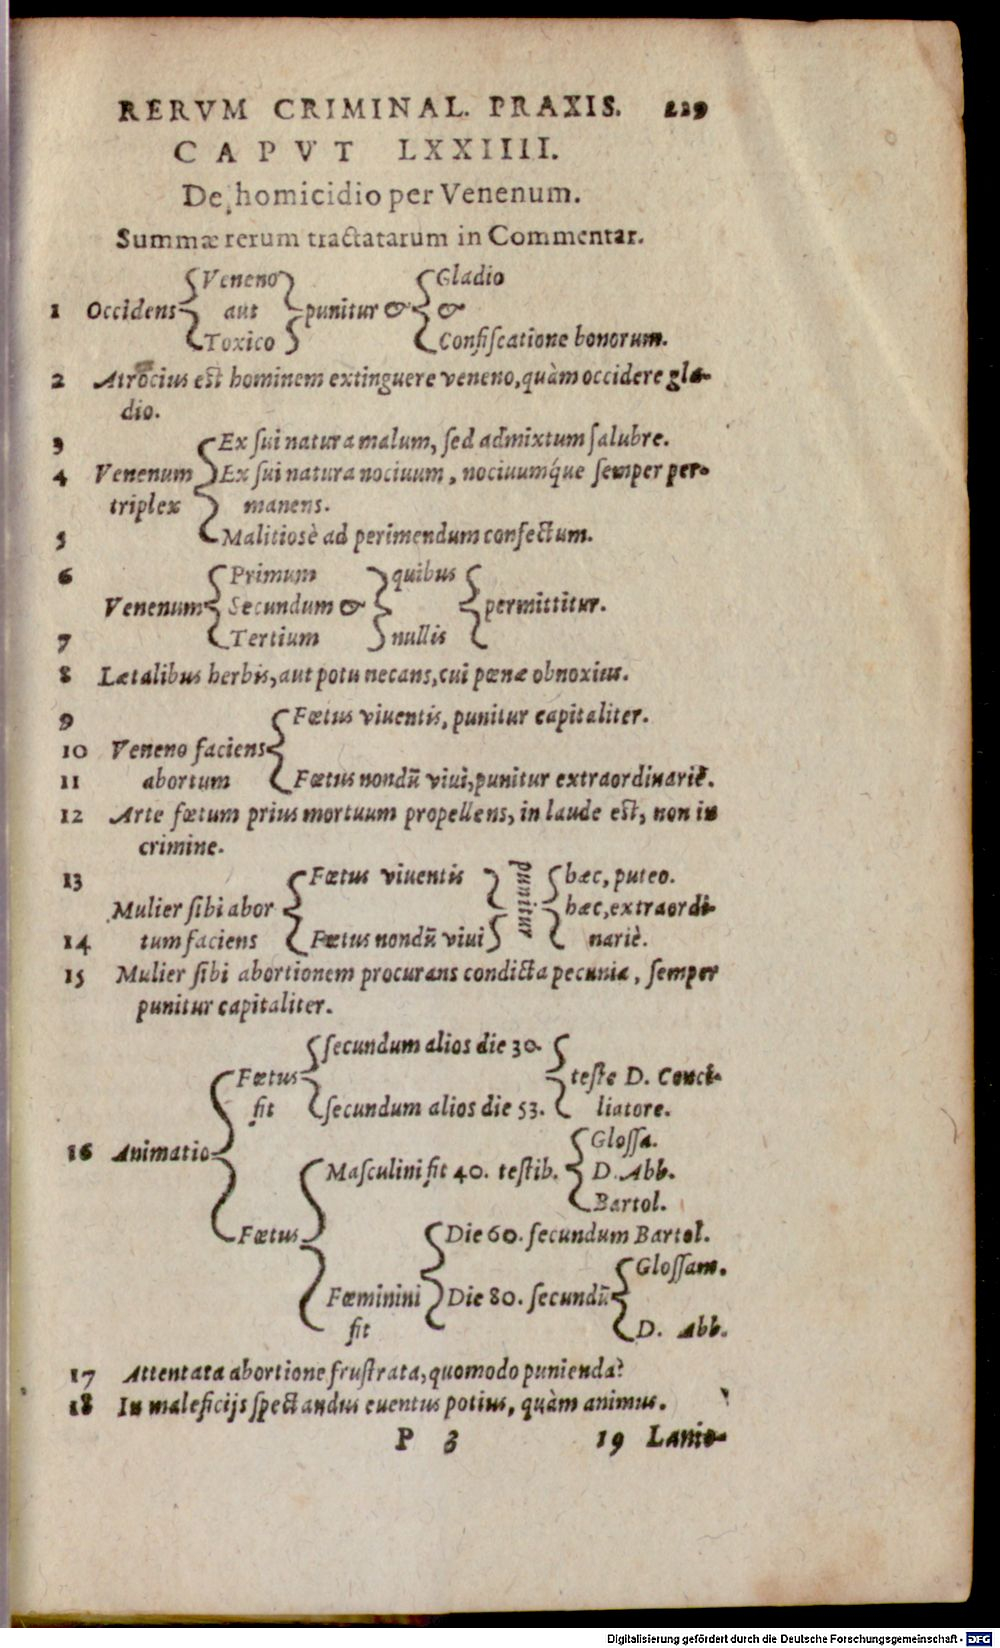 RERVM CRIMINAL. PRAXIS. 229
CAPVT LXXIIII.
De homicidio per Venenum.
Summæ rerum tractatarum in Commentar.
Veneno Gladio
1 Occidens aut punitur & &
Toxico Confiſcatione bonorum.
2 Atrocius eſt hominem extinguere veneno, quàm occidere gla-
dio.
3 Ex ſui natura malum, ſed admixtum ſalubre.
4 Venenum Ex ſui natura nociuum, nociuumq́ue ſemper per-
triplex manens.
5 Malitioſè ad perimendum confectum.
6 Primum quibus
Venenum Secundum & permittitur.
7 Tertium nullis
8 Lætalibus herbis, aut potu necans, cui pœnæ obnoxius.
9 Fœtus viuentis, punitur capitaliter.
10 Veneno faciens
11 abortum Fœtus nondũ viui, punitur extraordinariè.
12 Arte fœtum prius mortuum propellens, in laude eſt, non in
crimine.
13 Fœtus viuentis hæc, puteo.
Mulier ſibi abor punitur hæc, extraordi-
14 tum faciens Fœtus nondũ viui nariè.
15 Mulier ſibi abortionem procurans condicta pecunia, ſemper
punitur capitaliter.
ſecundum alios die 30.
Fœtus teſte D. Conci-
fit ſecundum alios die 53. liatore.
Gloſſa.
16 Animatio Maſculini fit 40. teſtib. D. Abb.
Bartol.
Fœtus Die 60. ſecundum Bartol.
Gloſſam.
Fœminini Die 80. ſecundũ
fit D. Abb.
17 Attentata abortione fruſtrata, quomodo punienda?
18 In maleficijs ſpectandus euentus potius, quàm animus.
P 3 19 Lanio-
Digitalisierung gefördert durch die Deutsche Forschungsgemeinschaft - DFG